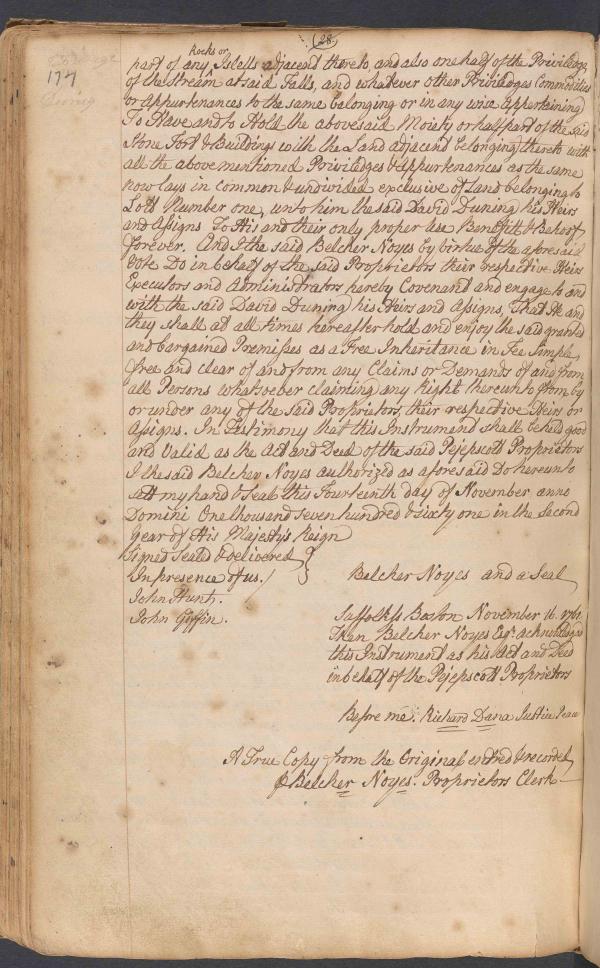 (28)
177
Rocks or
part of any Islells adjacent thereto, and also one half of the Priviledge
of the Stream at said Falls, and whatever other Priviledges Commodities
or Appurtenances to the same belonging or in any wise appertaining
To Have and to Hold the abovesaid Moiety or half part of the said
Stone Fort & Buildings with the Land adjacent belonging thereto with
all the above mentioned Priviledges & Appurtenances as the same
now lays in common & undivided exclusive of Land belonging to
Lott Number one, unto him the said David Duning his Heirs
and Assigns To His and their only proper Use Benefitt & Behoof
forever. And I the said Belcher Noyes by virtue of the aforesaid
Vote Do in behalf of the said Proprietors their respective Heirs
Executors and Administrators hereby Covenant and engage to and
with the said David Duning his Heirs and Assigns, That He and
they shall at all times hereafter hold and enjoy the said granted
and bargained Premisses as a Free Inheritance in Fee Simple,
free and clear of and from any Claims or Demands of and from
all Persons whatsoever claiming any Right thereunto from by
or under any of the said Proprietors, their respective Heirs or
Assigns. In Testimony that this Instrument shall be held good
and Valid as the Act and Deed of the said Pejepscott Proprietors
I the said Belcher Noyes authorized as aforesaid Do hereunto
sett my hand & Seal this Fourteenth day of November anno
Domini One thousand seven hundred & sixty one in the second
year of His Majesty's Reign
Signed Seal'd & delivered }
In presence of us. / Belcher Noyes and a Seal
John Hunt.
John Giffin.
Suffolk ss Boston November 16. 1761
Then Belcher Noyes Esqr. acknowledged
this Instrument as his Act and Deed
in behalf of the Pejepscott Proprietors
Before me. Richard Dana Justice Peace
A True Copy from the Original entred & recorded
⅌ Belcher Noyes. Proprietors Clerk